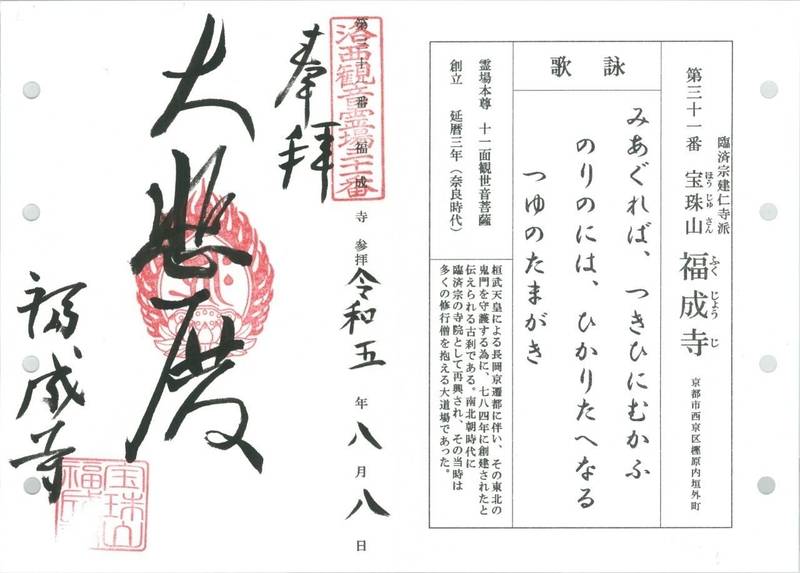 臨済宗建仁寺派
第三十一番 宝珠山 福成寺
ほうじゅさん ふくじょうじ
京都市西京区樫原内垣外町
詠歌
みあぐれば、つきひにむかふ
のりのには、ひかりたへなる
つゆのたまがき
霊場本尊 十一面観世音菩薩
創立 延暦三年（奈良時代）
桓武天皇による長岡京遷都に伴い、その東北の
鬼門を守護する為に、七八四年に創建されたと
伝えられる古刹である。南北朝時代に
臨済宗の寺院として再興され、その当時は
多くの修行僧を抱える大道場であった。
洛西観音霊場三十一番
第三十一番福成寺参拝 令和五年八月八日
奉拝
大悲殿
福成寺
宝珠山
福成